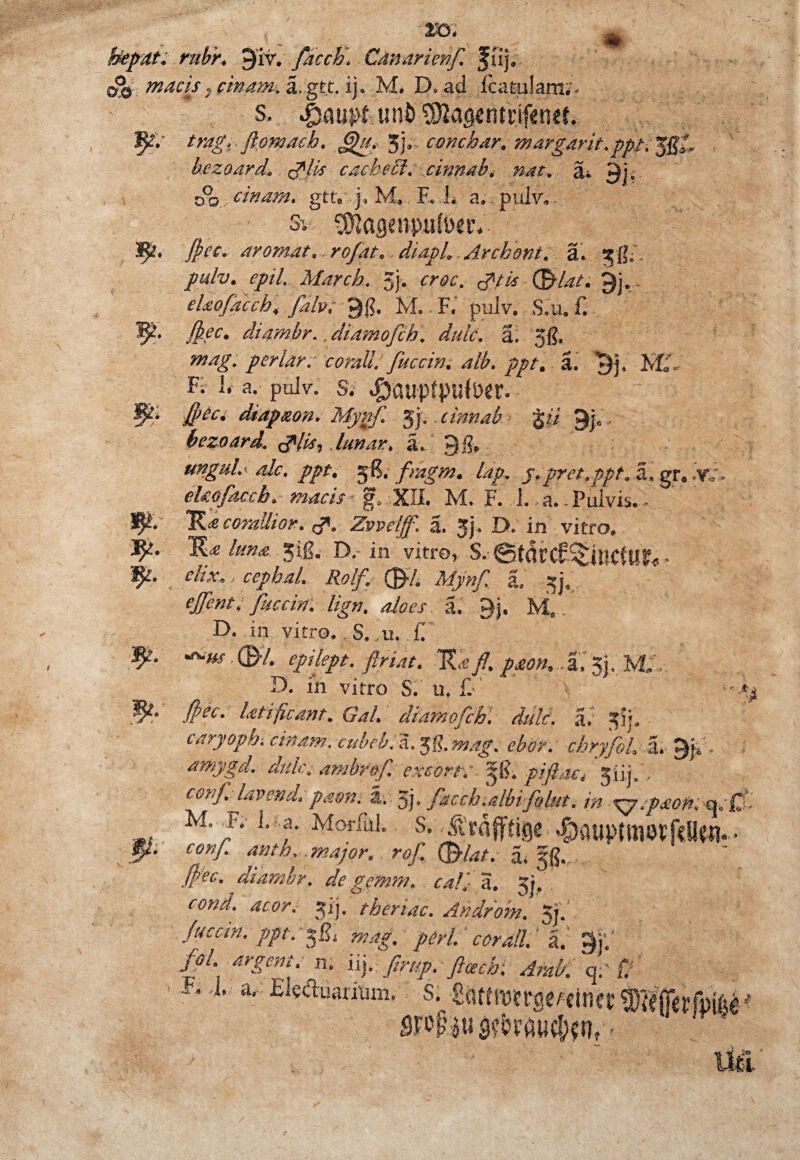 20.
hepat. rubr. ℈iv. sacch. Canariens. ℥iij.
macis, cinam. ā. gtt. ij. M. D. ad scatulam.
S. Haupt und Magentrisenet.
℞. trag. stomach. Qu. ʒj. conchar. margarit. ppt. ʒß.
bezoard. ♂lis cachect. cinnab. nat. ā. ℈j.
cinam. gtt. j. M. F. l. a. pulv.
S. Magenpulver.
℞. spec. aromat. rosat. diapl. Archont. ā. ʒß.
pulv. epil. March. ʒj. croc. ♂tis lat. ℈j.
elæosacch. salv. ℈ß. M. F. pulv. S. u. f.
℞. spec. diambr. diamosch. dulc. ā. ʒß.
mag. perlar. corall. succin. alb. ppt. ā. ℈j. M.
F. l. a. pulv. S. Hauptpulver.
℞. spec. diapæon. Myns. ʒj. cinnab ♁ii ℈j.
bezoard. ♂lis, lunar. ā. ℈ß.
ungul. alc. ppt. ʒß. fragm. lap. 5. pret. ppt. ā. gr. v.
elæosacch. macis g. XII. M. F. l. a. Pulvis.
℞. ℞æ corallior. ♂. Zvvelff. ā. ʒj. D. in vitro.
℞. ℞æ lunæ ʒiß. D. in vitro, S. Starck Tinctur.
℞. elix. cephal. Rolf. l. Myns. ā. ʒj.
essent. succin. lign. aloes ā. ℈j. M.
D. in vitro. S. u. f.
℞. us l. epilept. striat. ℞æ fl. pæon. ā. ʒj. M.
D. in vitro S. u. f.
℞. spec. lætificant. Gal. diamosch. dulc. ā. ʒij.
caryoph. cinam. cubeb. ā. ʒß. mag. ebor. chrysol. ā. ℈j.
amygd. dulc. ambros. excort. ℥ß. pistac. ʒiij.
conf. lavend. pæon. ā. ʒj. sacch. albi solut. in ▽. pæon. q. f.
M. F. l. a. Morsul. S. Kräfftige Hauptmorsellen.
℞. conf. anth. major. ros. lat. ā. ℥ß.
spec. diambr. de gemm. cal. ā. ʒj.
cond. acor. ʒij. theriac. Androm. ʒj.
succin. ppt. ʒß. mag. perl. corall. ā. ℈j.
fol. argent. n. iij. sirup. stœch. Arab. q. f.
F. l. a. Electuarium. S. Lattwerge / einer Messerspitze
groß zu gebrauchen,